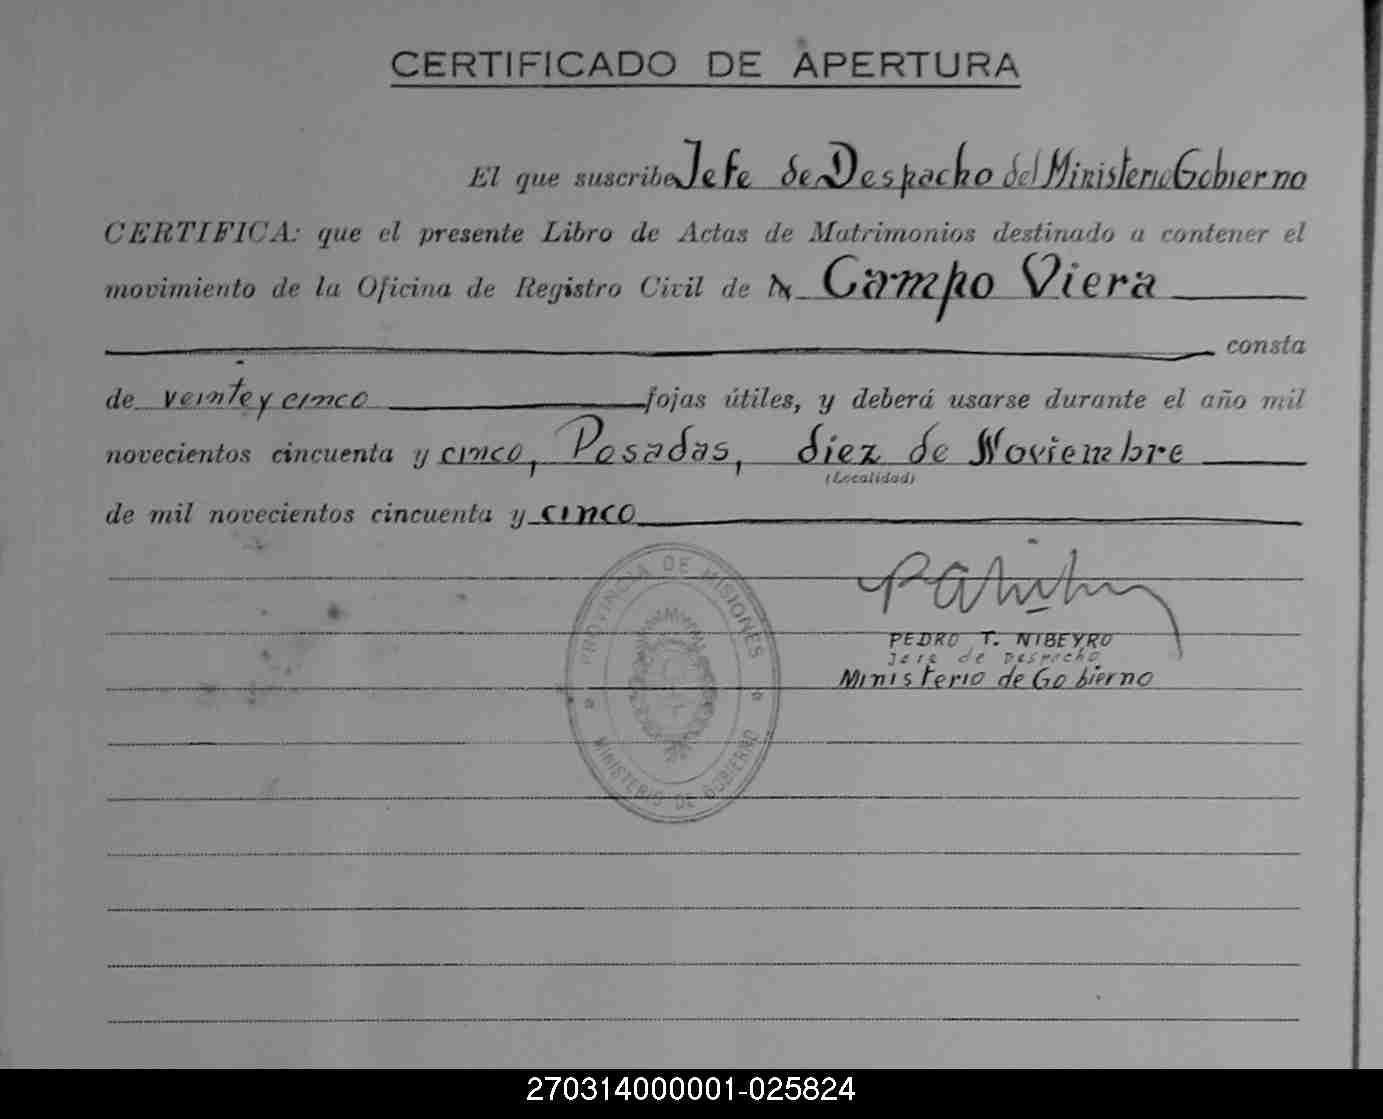 CERTIFICADO DE APERTURA
El que suscribe Jefe de Despacho del Ministerio Gobierno
CERTIFICA: que el presente Libro de Actas de Matrimonios destinado a contener el
movimiento de la Oficina de Registro Civil de Campo Viera
consta
de veinte y cinco fojas útiles, y deberá usarse durante el año mil
novecientos cincuenta y cinco, Posadas, diez de Noviembre
(Localidad)
de mil novecientos cincuenta y cinco
PROVINCIA DE MISIONES
MINISTERIO DE GOBIERNO
PEDRO T. NIBEYRO
Jefe de Despacho
Ministerio de Gobierno
270314000001-025824